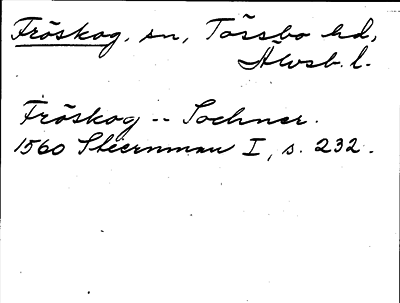 Fröskog, sn, Tössbo hd,
Älvsb. l.
Fröskog -- Sochner.
1560 Stiernman I, s. 232.